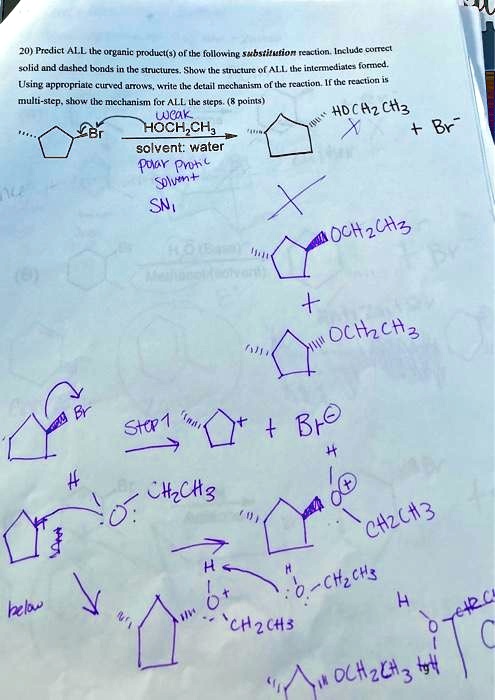 20) Predict ALL the organic product(s) of the following substitution reaction. Include correct
solid and dashed bonds in the structures. Show the structure of ALL the intermediates formed.
Using appropriate curved arrows, write the detail mechanism of the reaction. If the reaction is
multi-step, show the mechanism for ALL the steps. (8 points)
weak
Br
HOCH2CH3
solvent: water
Polar Protic
Solvent
SN1
HOCH2CH3
X
+ Br-
X
OCH2CH3
+
OCH2CH3
Br
Step 1
+
+ Br⊖
H
H
:O:
CH2CH3
+
O⊕
CH2CH3
below
H
O+
CH2CH3
H
:O-CH2CH3
OCH2CH3
H
O